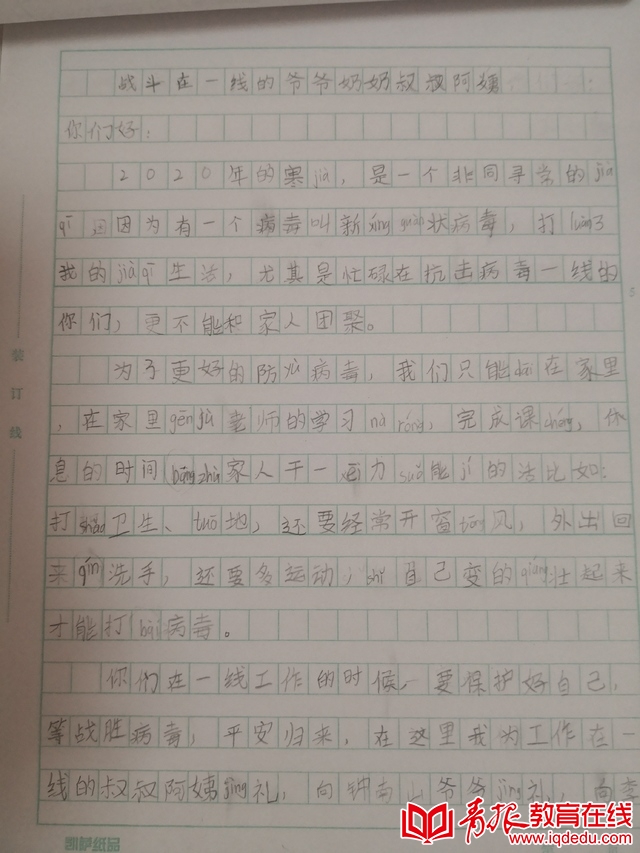 战斗在一线的爷爷奶奶叔叔阿姨
你们好:
2020年的寒jià,是一个非同寻常的jià
qī 因为有一个病毒叫新xíng guān状病毒,打luàn了
我的jià qī生活,尤其是忙碌在抗击病毒一线的
你们,更不能和家人团聚。
为了更好的防yù病毒,我们只能dāi在家里
,在家里gēn jù老师的学习nà róng,完成课chéng,休
息的时间bāng zhù家人干一些力suǒ能jí的活比如:
打shǎo卫生、tuō地,还要经常开窗tōng风,外出回
来qín洗手,还要多运动,shǐ自己变的qiáng壮起来
才能打bài病毒。
你们在一线工作的时候,要保护好自己,
等战胜病毒,平安归来,在这里我为工作在一
线的叔叔阿姨jìng礼,向钟南山爷爷jìng礼,向李
装订线
5
凯萨纸品
青报教育在线
www.iqdedu.com